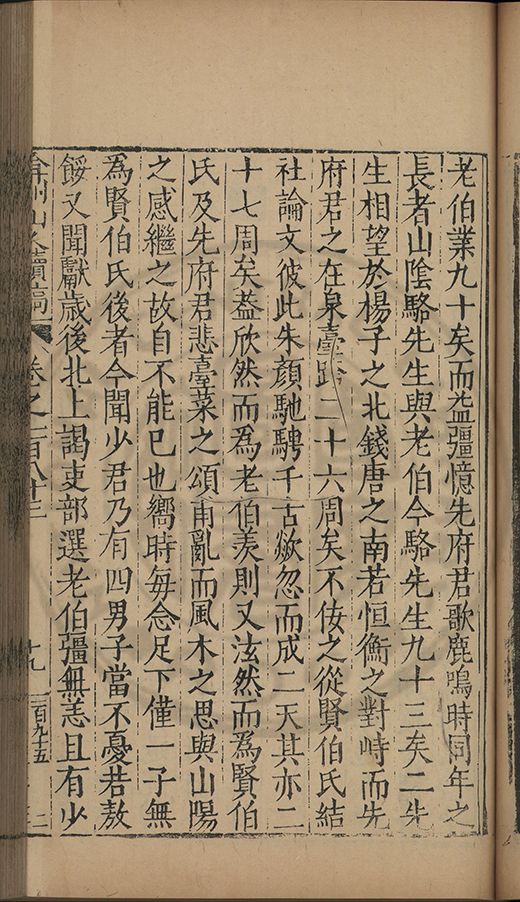 老伯業九十矣而益彊憶先府君歌鹿鳴時同年之
長者山陰駱先生與老伯今駱先生九十三矣二先
生相望於楊子之北錢唐之南若恒衡之對峙而先
府君之在泉臺踰二十六周矣不佞之從賢伯氏結
社論文彼此朱顔馳騁千古歘忽而成二天其亦二
十七周矣葢欣然而為老伯羨則又泫然而爲賢伯
氏及先府君悲臺萊之頌甫亂而風木之思與山陽
之感繼之故自不能已也嚮時毎念足下僅一子無
為賢伯氏後者今聞少君乃有四男子當不憂若敖
餒又聞獻歲後北上謁吏部選老伯彊無恙且有少
弇州山人續稿 卷之一百八十三 十九 三百九十五 二